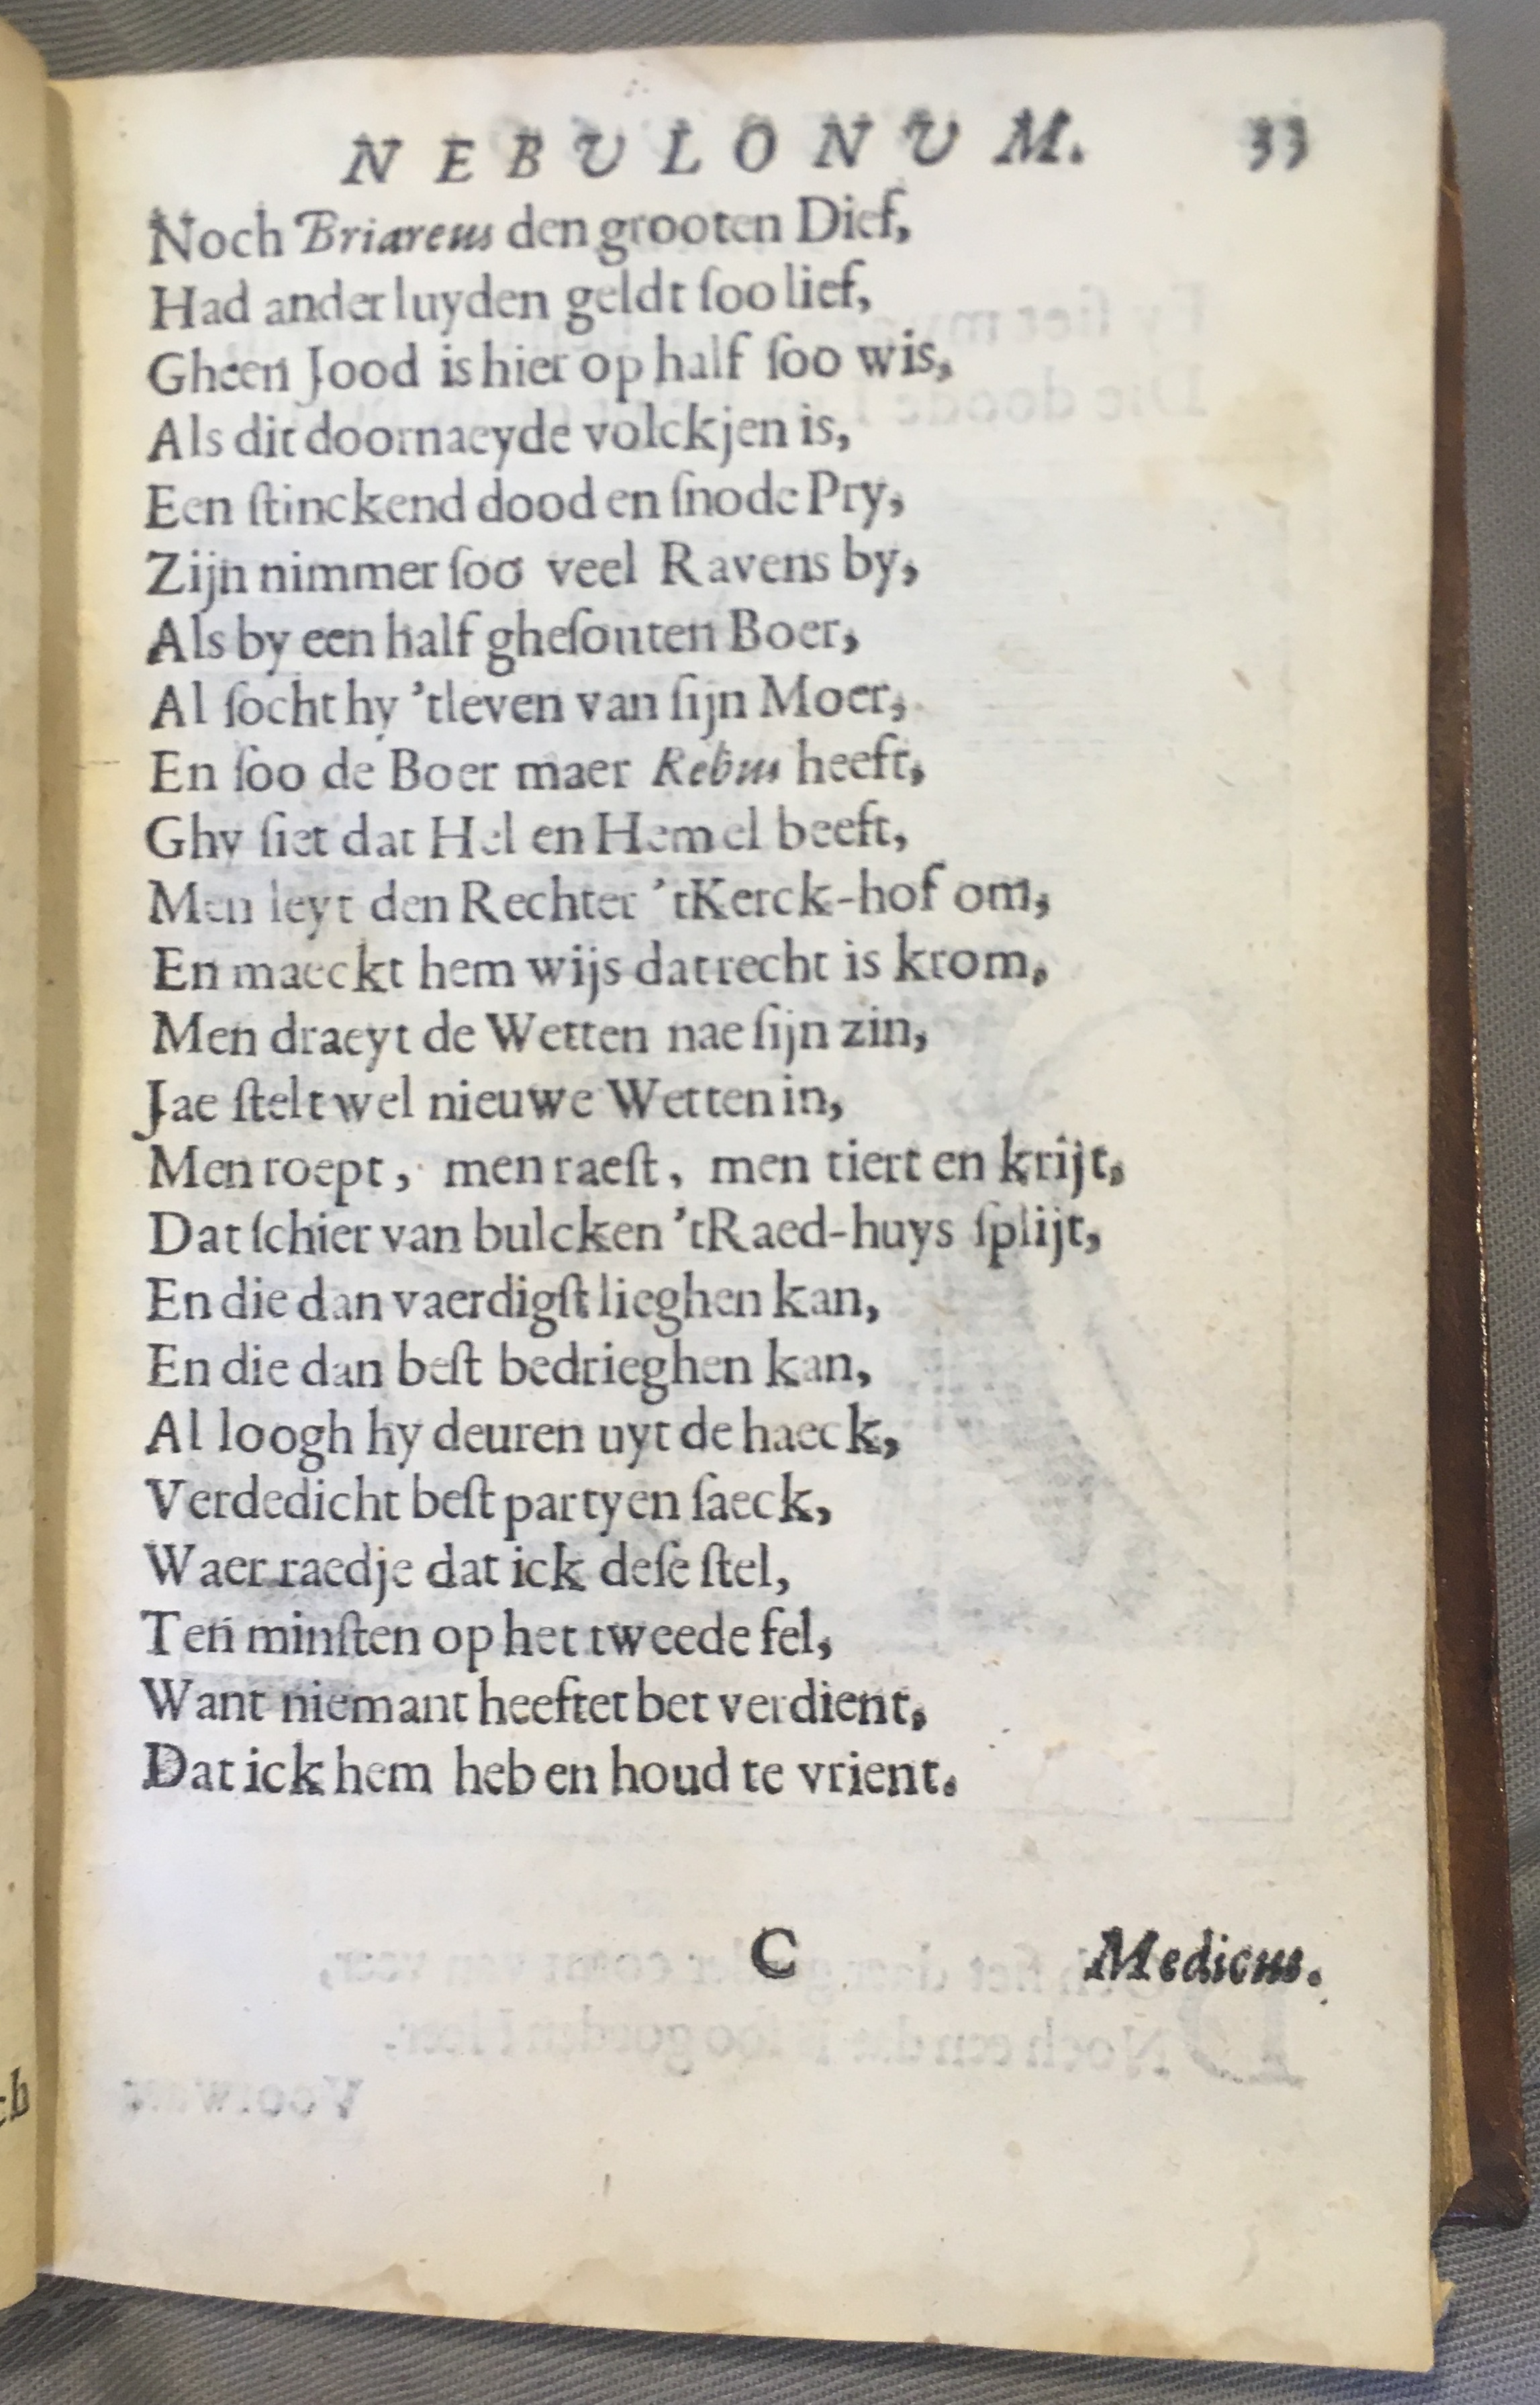 NEBULONUM. 33
Noch Briareus den grooten Dief,
Had ander luyden geldt ſoo lief,
Gheen Jood is hier op half ſoo wis,
Als dit doornaeyde volckjen is,
Een ſtinckend dood en ſnode Pry,
Zijn nimmer ſoo veel Ravens by,
Als by een half gheſouten Boer,
Al ſocht hy 'tleven van ſijn Moer,
En ſoo de Boer maer Rebus heeft,
Ghy ſiet dat Hel en Hemel beeft,
Men leyt den Rechter 'tKerck-hof om,
En maeckt hem wijs dat recht is krom,
Men draeyt de Wetten nae ſijn zin,
Jae ſtelt wel nieuwe Wetten in,
Men roept, men raeſt, men tiert en krijt,
Dat ſchier van bulcken 'tRaed-huys ſplijt,
En die dan vaerdigſt lieghen kan,
En die dan beſt bedrieghen kan,
Al loogh hy deuren uyt de haeck,
Verdedicht beſt partyen ſaeck,
Waer raedje dat ick deſe ſtel,
Ten minſten op het tweede fel,
Want niemant heeftet bet verdient,
Dat ick hem heb en houd te vrient.
C Medicus.